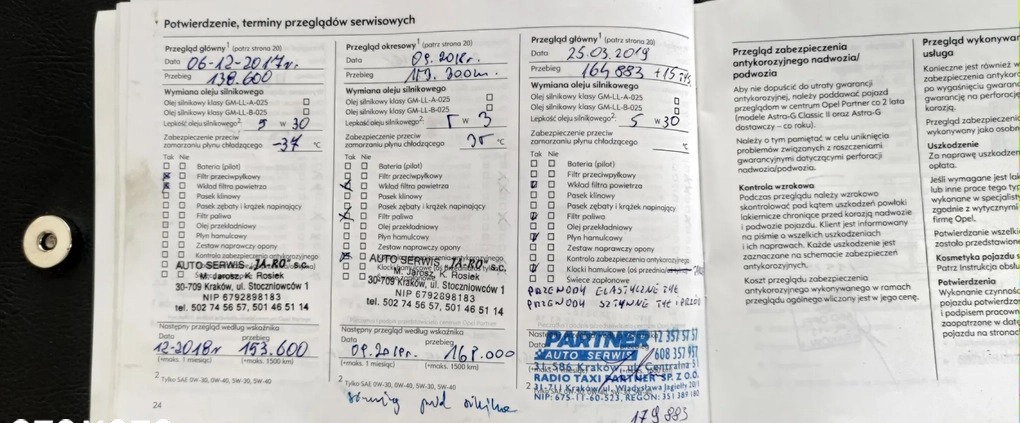 Potwierdzenie, terminy przeglądów serwisowych
Przegląd główny1 (patrz strona 20)
Data 06-12-2017r.
Przebieg 138.600
Wymiana oleju silnikowego
Olej silnikowy klasy GM-LL-A-025
Olej silnikowy klasy GM-LL-B-025
Lepkość oleju silnikowego2: 5 W 30
Zabezpieczenie przeciw
zamarzaniu płynu chłodzącego -37 °C
Tak Nie
Bateria (pilot)
Filtr przeciwpyłkowy
Wkład filtra powietrza
Pasek klinowy
Pasek zębaty i krążek napinający
Filtr paliwa
Olej przekładniowy
Płyn hamulcowy
Zestaw naprawczy opony
Kontrola zabezpieczenia antykorozyjnego
AUTO SERWIS "JA-RO" s.c.
M. Jarosz, K. Rosiek
30-709 Kraków, ul. Stoczniowców 1
NIP 6792898183
tel. 502 74 56 57, 501 46 51 14
Następny przegląd według wskaźnika
Data przebieg
12-2018r 153.600
(+maks. 1 miesiąc) (+maks. 1500 km)
2 Tylko SAE 0W-30, 0W-40, 5W-30, 5W-40
24
Przegląd okresowy1 (patrz strona 20)
Data 09.2018r.
Przebieg
Wymiana oleju silnikowego
Olej silnikowy klasy GM-LL-A-025
Olej silnikowy klasy GM-LL-B-025
Lepkość oleju silnikowego2: W 3
Zabezpieczenie przeciw
zamarzaniu płynu chłodzącego 35 °C
Tak Nie
Bateria (pilot)
Filtr przeciwpyłkowy
Wkład filtra powietrza
Pasek klinowy
Pasek zębaty i krążek napinający
Filtr paliwa
Olej przekładniowy
Płyn hamulcowy
Zestaw naprawczy opony
AUTO SERWIS "JA-RO" s.c.
M. Jarosz, K. Rosiek
30-709 Kraków, ul. Stoczniowców 1
NIP 6792898183
tel. 502 74 56 57, 501 46 51 14
Następny przegląd według wskaźnika
Data przebieg
168.000
(+maks. 1 miesiąc) (+maks. 1500 km)
2 Tylko SAE 0W-30, 0W-40, 5W-30, 5W-40
Przegląd główny1 (patrz strona 20)
Data 25.03.2019
Przebieg 164 883 +15
Wymiana oleju silnikowego
Olej silnikowy klasy GM-LL-A-025
Olej silnikowy klasy GM-LL-B-025
Lepkość oleju silnikowego2: 5 W 30
Zabezpieczenie przeciw
zamarzaniu płynu chłodzącego °C
Tak Nie
Bateria (pilot)
Filtr przeciwpyłkowy
Wkład filtra powietrza
Pasek klinowy
Pasek zębaty i krążek napinający
Filtr paliwa
Olej przekładniowy
Płyn hamulcowy
Zestaw naprawczy opony
Kontrola zabezpieczenia antykorozyjnego
Klocki hamulcowe (oś
Świece zapłonowe
PRZEWODY ELASTYCZNE TYŁ
PRZEWODY SZTYWNE TYŁ I PRZÓD
Następny przegląd według wskaźnika
Data
PARTNER
AUTO SERWIS
12 357 57 57
608 357 957
31-586 Kraków, ul. Centralna
RADIO TAXI PARTNER SP. Z O.O.
31-711 Kraków, ul. Władysława Jagiełły
NIP: 675-11-60-523, REGON: 351 389 180
2
179 883
Przegląd zabezpieczenia
antykorozyjnego nadwozia/
podwozia
Aby nie dopuścić do utraty gwarancji
antykorozyjnej, należy poddawać pojazd
przeglądom w centrum Opel Partner co 2 lata
(modele Astra-G Classic II oraz Astra-G
dostawczy – co roku).
Należy o tym pamiętać w celu uniknięcia
problemów związanych z roszczeniami
gwarancyjnymi dotyczącymi perforacji
nadwozia/podwozia.
Kontrola wzrokowa
Podczas przeglądu należy wzrokowo
skontrolować pod kątem uszkodzeń powłoki
lakiernicze chroniące przed korozją nadwozie
i podwozie pojazdu. Klient jest informowany
na piśmie o wszelkich uszkodzeniach
i ich naprawach. Każde uszkodzenie jest
zaznaczane na schemacie zabezpieczeń
antykorozyjnych.
Koszt przeglądu zabezpieczenia
antykorozyjnego wykonywanego w ramach
przeglądu ogólnego wliczony jest w jego cenę.
Przegląd wykonywan
usługa
Konieczne jest również w
zabezpieczenia antykoro
po wygaśnięciu gwaranc
gwarancję na perforację
korozją.
Przegląd zabezpieczenia
wykonywany jako osobn
Uszkodzenie
Za naprawę uszkodzen
opłata.
Jeśli wymagane jest lak
lub inne prace tego typ
wykonane w specjalist
zgodnie z wytycznymi
firmę Opel.
Potwierdzanie wszelki
zostało przedstawione
Kosmetyka pojazdu s
Patrz Instrukcja obsłu
Potwierdzenia
Wykonanie czynnośc
pojazdu potwierdza
i podpisem pracown
zaopatrzone w datę
pojazdu na stronac